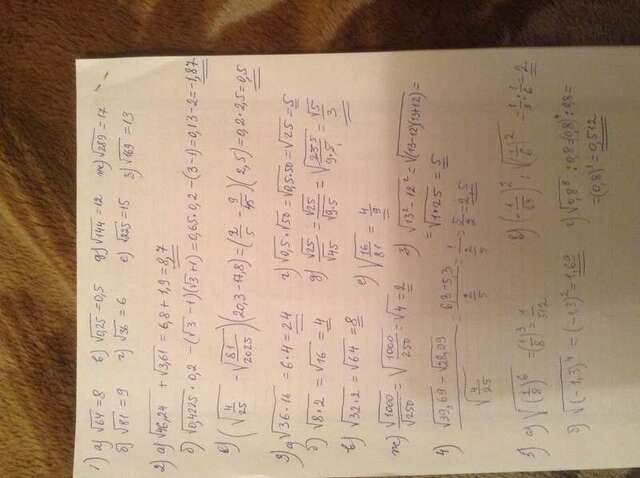 1) а) √64 = 8 в) √0,25 = 0,5 д) √144 = 12 ж) √289 = 17
б) √81 = 9 г) √36 = 6 е) √225 = 15 з) √169 = 13
2) а) √46,24 + √3,61 = 6,8 + 1,9 = 8,7
б) √0,4225 · 0,2 - (√3 - 1)(√3 + 1) = 0,65 · 0,2 - (3 - 1) = 0,13 - 2 = -1,87
в) (√4/25 - √81/2025)(20,3 - 17,8) = (2/5 - 9/45)(2,5) = 0,2 · 2,5 = 0,5
3) а) √36 · 16 = 6 · 4 = 24 г) √0,5 · √50 = √0,5 · 50 = √25 = 5
б) √8 · 2 = √16 = 4 д) √25/√45 = √25/√9·5 = = √5/3
в) √32 · 2 = √64 = 8 е) √16/81 = 4/9
ж) √1000/√250 = √1000/250 = √4 = 2 з) √13² - 12² = √(13-12)(13+12) =
= √1 · 25 = 5
4) √39,69 - √28,09 / √4/25 = 6,3 - 5,3 / 2/5 = 1 / 2/5 = 5/2 = 2,5
5) а) √(1/8)⁶ = (1/8)³ = 1/512 в) : = 1/3 : 1/6 = 2
б) √(-1,3)⁴ = (-1,3)² = 1,69 г) : 0,8 = : 0,8 =
= (0,8)³ = 0,512